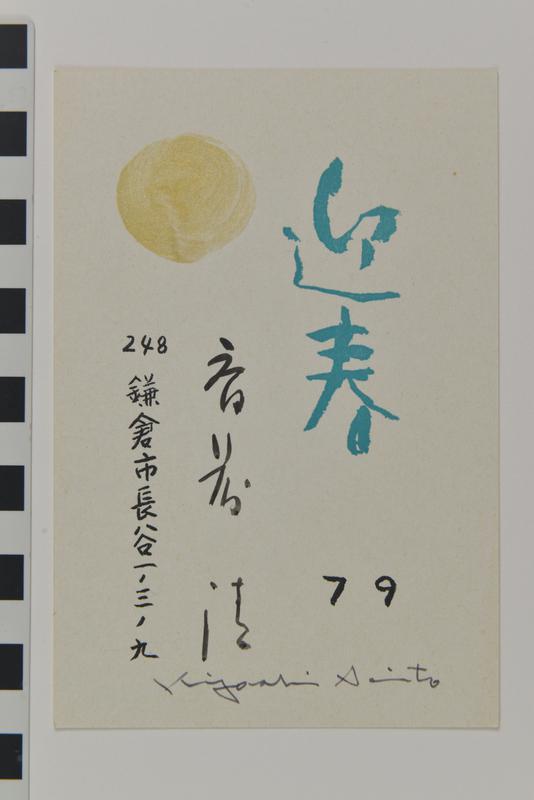 迎春
79
斎藤 清
248
鎌倉市長谷一ノ三ノ九
Kiyoshi Saito